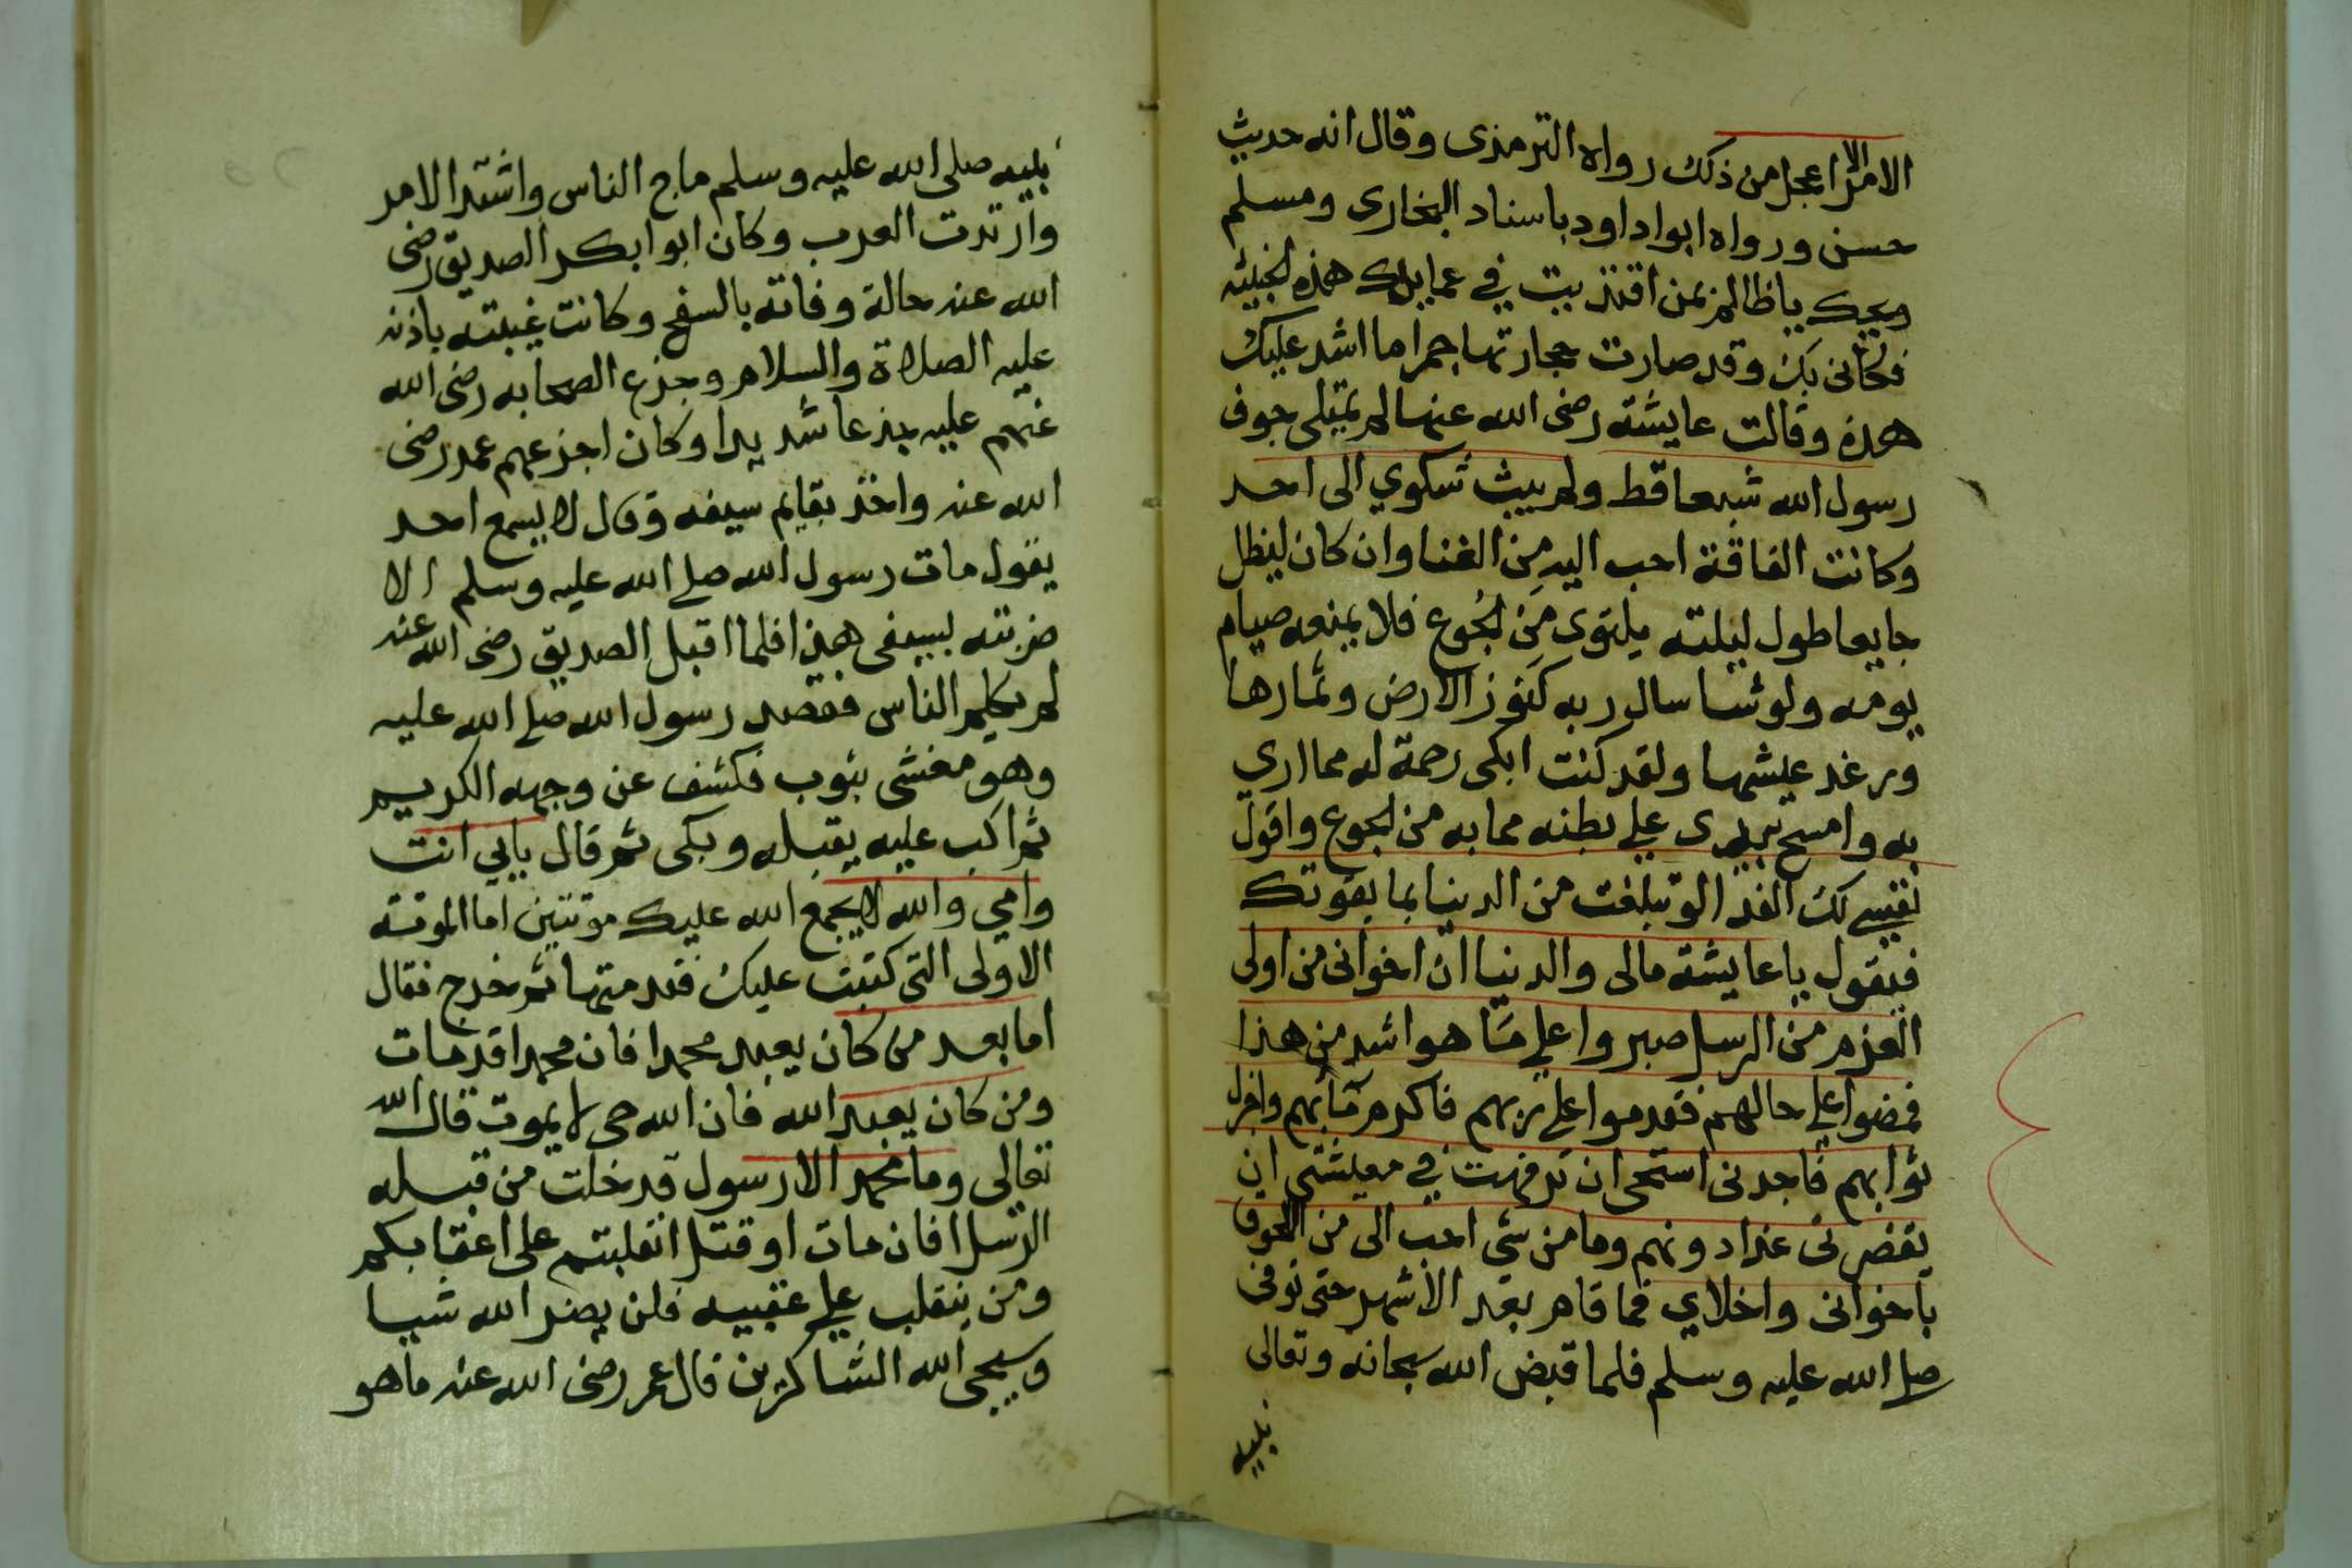 الامر الا اعجل من ذلك رواه الترمذى وقال انه حديث
حسن ورواه ابوا داود باسناد البخارى ومسلم
ويحك ياظالم بمن اقتديت في عمايلك هذه الخبيثه
فكانى بك وقد صارت حجارتها جمرا ما اشد عليك
هذه وقالت عايشة رضى الله عنها لم يمتلى جوف
رسول الله شبعا قط ولم يبث شكوي الى احد
وكانت الفاقة احب اليه من الغنا وان كان ليظل
جايعا طول ليلته يلتوى من الجوع فلا يمنعه صيام
يومه ولو شا سال ربه كنوز الارض وثمارها
ورغد عيشها ولقد كنت ابكى رحمة له مما اري
به وامسح بيدى على بطنه مما به من الجوع واقول
نفسي لك الفدا لو تبلغت من الدنيا بما يقوتك
فيقول يا عايشة مالى والدنيا ان اخوانى من اولى
العزم من الرسل صبروا على ما هو اشد من هذا
فمضوا على حالهم فقدموا على ربهم فاكرم مآبهم واجزل
ثوابهم فاجدنى استحى ان ترفهت في معيشتى ان
يقصر بى غدا دونهم وما من شى احب الى من اللحوق
باخوانى واخلاي فما قام بعد الا شهر حتى توفى
صلى الله عليه وسلم فلما قبض الله سبحانه وتعالى
نبيه
نبيه صلى الله عليه وسلم ماج الناس واشتد الامر
وارتدت العرب وكان ابوا بكر الصديق رضى
الله عنه حالة وفاته بالسفح وكانت غيبته باذنه
عليه الصلاة والسلام وجزع الصحابه رضى الله
عنهم عليه جزعا شديدا وكان اجزعهم عمر رضى
الله عنه واخذ بقايم سيفه وقال لا يسمع احد
يقول مات رسول الله صلى الله عليه وسلم الا
ضربته بسيفى هذا فلما اقبل الصديق رضى الله عنه
لم يكلم الناس فقصد رسول الله صلى الله عليه
وهو مغشى بثوب فكشف عن وجهه الكريم
ثم اكب عليه يقبله وبكى ثم قال بابي انت
وامي والله لا يجمع الله عليك موتتين اما الموتة
الاولى التى كتبت عليك فقد متها ثم خرج فقال
اما بعد من كان يعبد محمدا فان محمدا قد مات
ومن كان يعبد الله فان الله حى لا يموت قال الله
تعالى وما محمد الا رسول قد خلت من قبله
الرسل افان مات او قتل انقلبتم على اعقابكم
ومن ينقلب على عقبيه فلن يضر الله شيا
وسيجى الله الشاكرين قال عمر رضى الله عنه ما هو